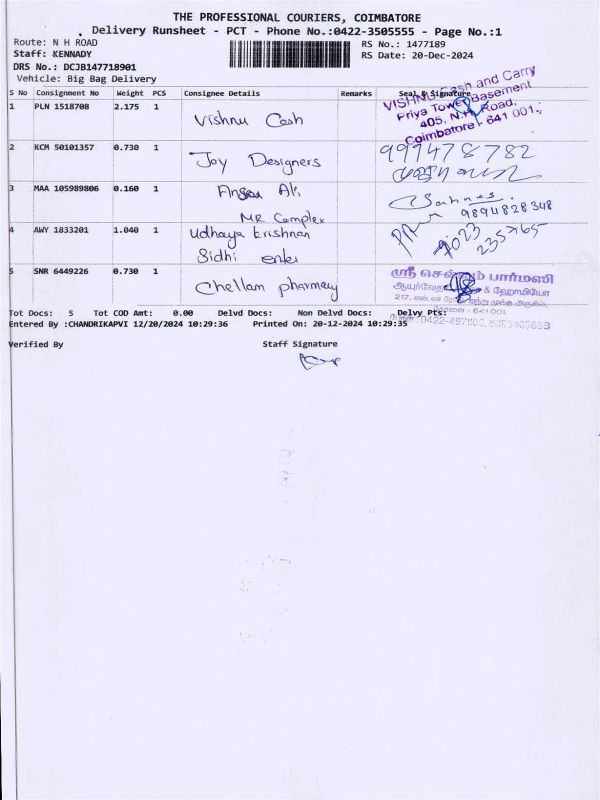 THE PROFESSIONAL COURIERS, COIMBATORE
Delivery Runsheet - PCT - Phone No.:0422-3505555 - Page No.:1
Route: N H ROAD RS No.: 1477189
Staff: KENNADY RS Date: 20-Dec-2024
DRS No.: DCJB147718901
Vehicle: Big Bag Delivery
S No Consignment No Weight PCS Consignee Details Remarks Seal & Signature
1 PLN 1518708 2.175 1 Vishnu Cash
VISHNU Cash and Carry
Priya Tower Basement
405, N.H. Road,
Coimbatore - 641 001.
2 KCM 50101357 0.730 1 Joy Designers 999478782
3 MAA 105989806 0.160 1 Ansar Ali,
MR Complex 9894828348
4 AWY 1833201 1.040 1 Udhaya krishnan
Sidhi 7023
235765
5 SNR 6449226 0.730 1 Chellam pharmacy
ஸ்ரீ செல்லம் பார்மஸி
ஆயுர்வேத & ஹோமியோ
கோவை - 641 001
Tot Docs: 5 Tot COD Amt: 0.00 Delvd Docs: Non Delvd Docs: Delvy Pts:
Entered By :CHANDRIKAPVI 12/20/2024 10:29:36 Printed On: 20-12-2024 10:29:35
Verified By Staff Signature